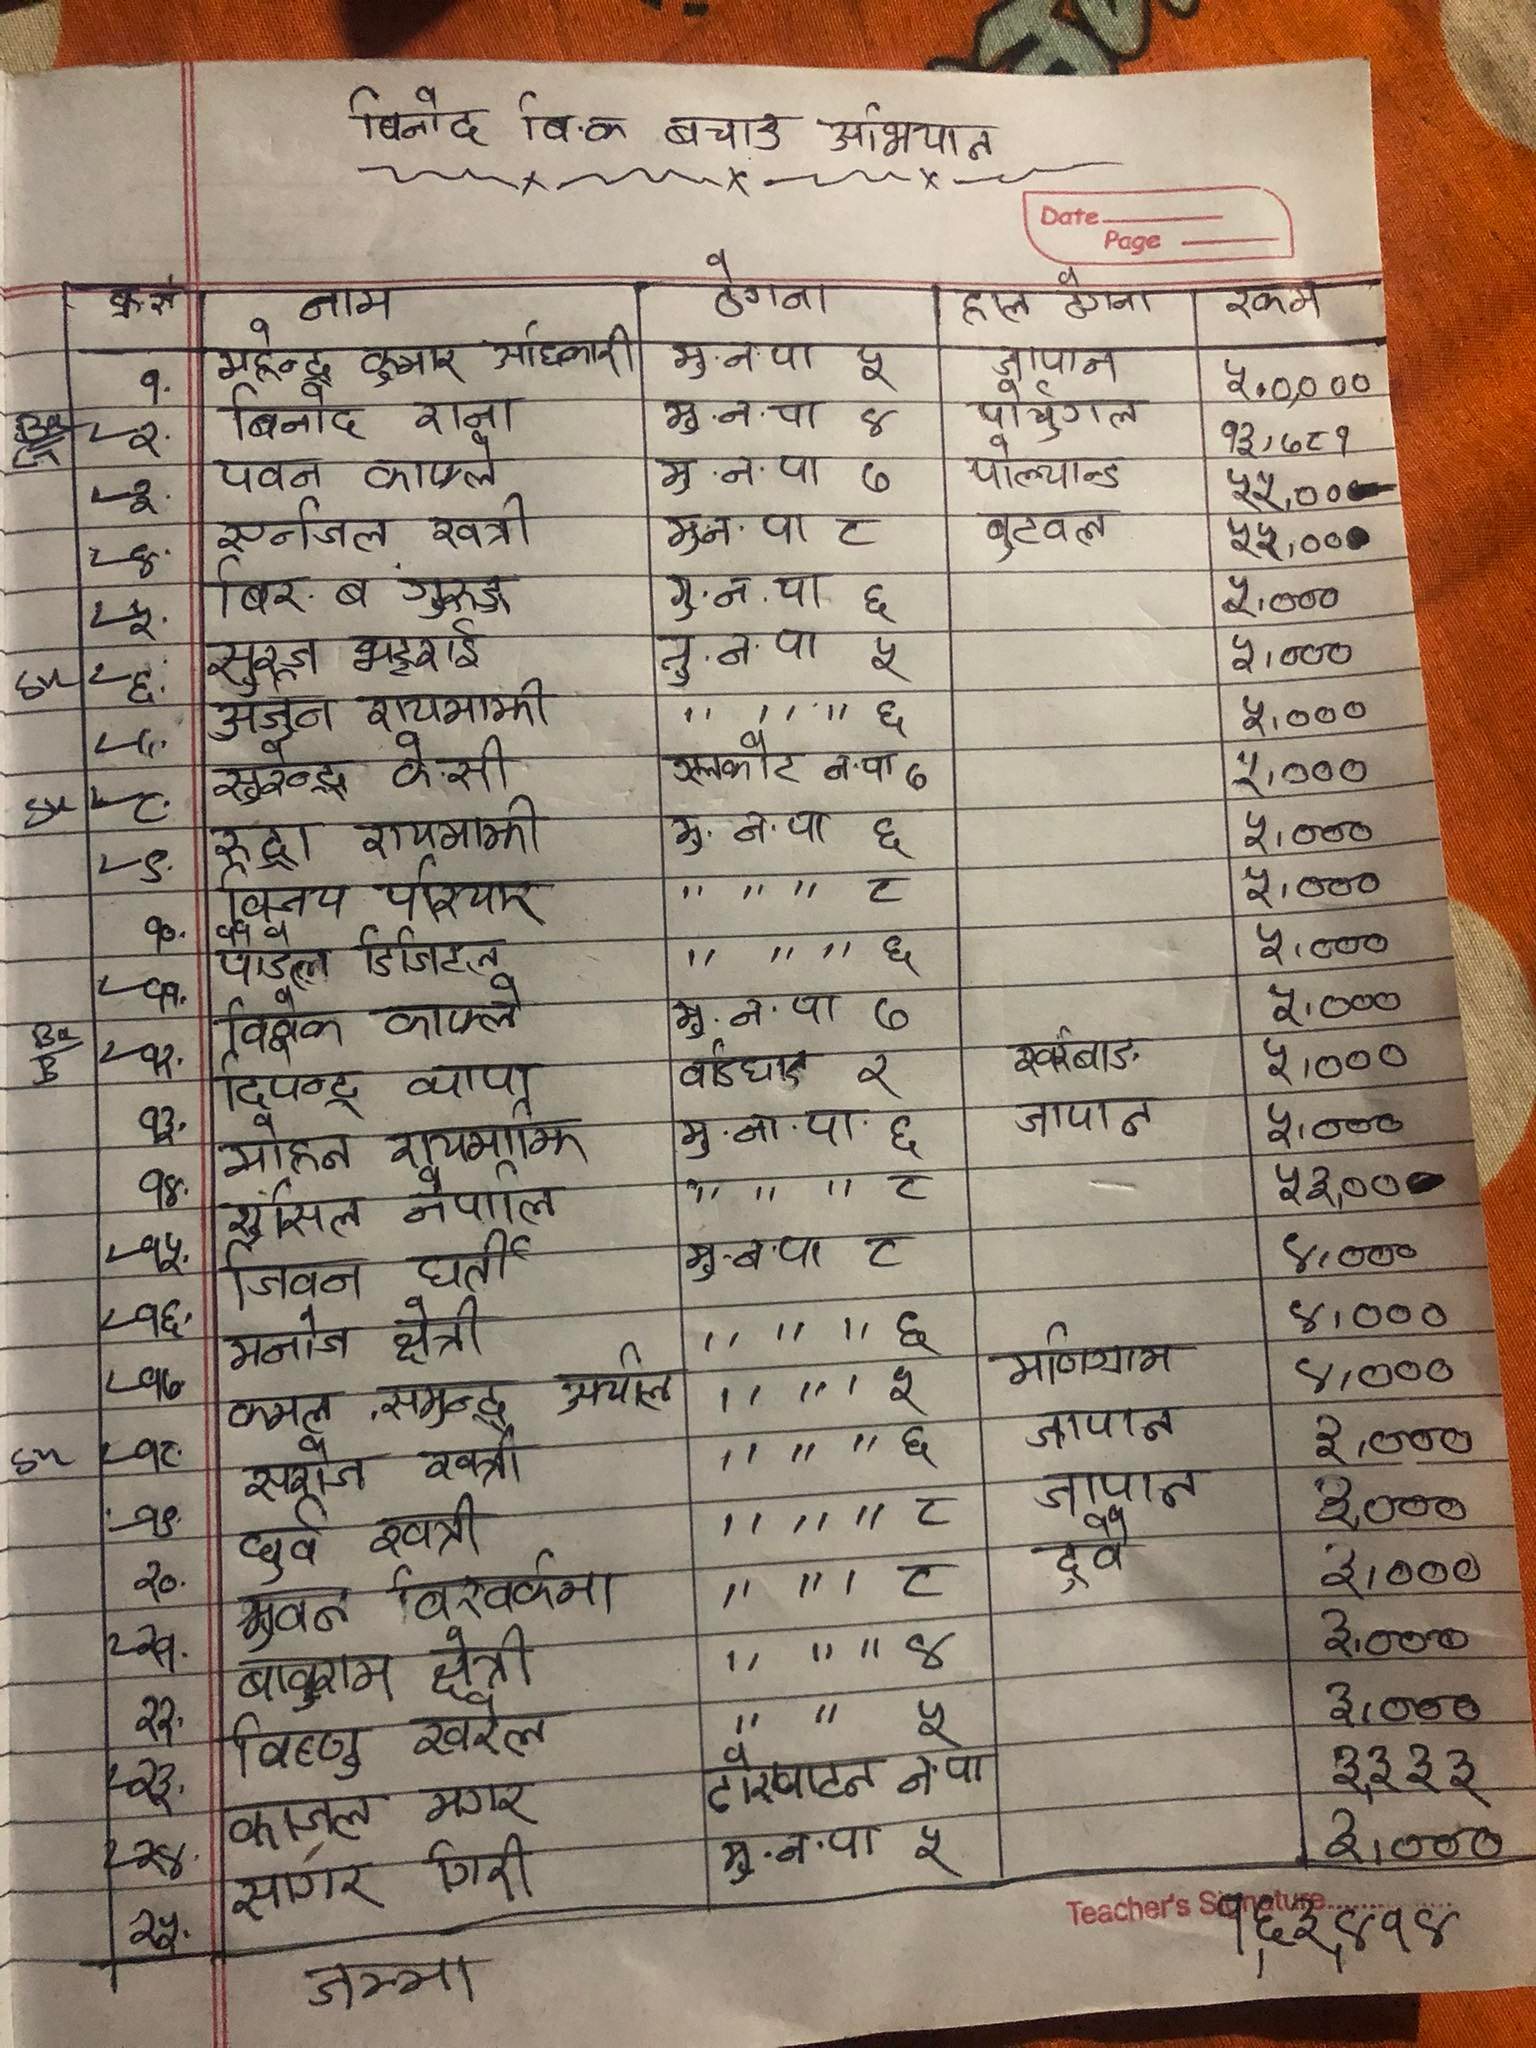 विनोद वि.क बचाउ अभियान
Date
Page
क्र.सं नाम ठेगाना हाल ठेगाना रकम
१. महेन्द्र कुमार अधिकारी मु.न.पा ५ जापान ५०,०००
२. बिनोद राना मु.न.पा ४ पोर्चुगल १३,७८१
३. पवन काफ्ले मु.न.पा ७ पोल्यान्ड
४. खत्री मु.न.पा ८ बुटवल
५. बिर.ब गुरुङ मु.न.पा ६ ५,०००
६. सुरज भट्टराई मु.न.पा ५ ५,०००
७. अर्जुन रायमाझी " " " ६ ५,०००
८. सुरेन्द्र के.सी न.पा ७ ५,०००
९. रुद्रा रायमाझी मु.न.पा ६ ५,०००
१०. विजय परियार " " " ८ ५,०००
११. पौडेल डिजिटल " " " ६ ५,०००
१२. विवेक काफ्ले मु.न.पा ७ ५,०००
१३. दिपेन्द्र थापा बर्डघाट २ खर्बाङ ५,०००
१४. मोहन रायमाझि मु.ना.पा. ६ जापान ५,०००
१५. सुसिल नेपालि " " " ८ —
१६. जिवन घर्ती मु.न.पा ८ ४,०००
१७ मनोज क्षेत्री " " " ६ ४,०००
१८ कमल, समुन्द्र अर्याल " " " ५ मणिग्राम ४,०००
१९. सरोज खत्री " " " ६ जापान ३,०००
२०. ध्रुर्व खत्री " " " ८ जापान ३,०००
२१. भुवन विश्वर्कमा " " " ८ दुवै ३,०००
२२. बाबुराम क्षेत्री " " " ४ ३,०००
२३. विष्णु खरेल " " ५ ३,०००
२४. काजल मगर ढोरपाटन न.पा ३,३३३
२५. सागर गिरी मु.न.पा ५ ३,०००
Teacher's Signature
जम्मा १,६३,४१४